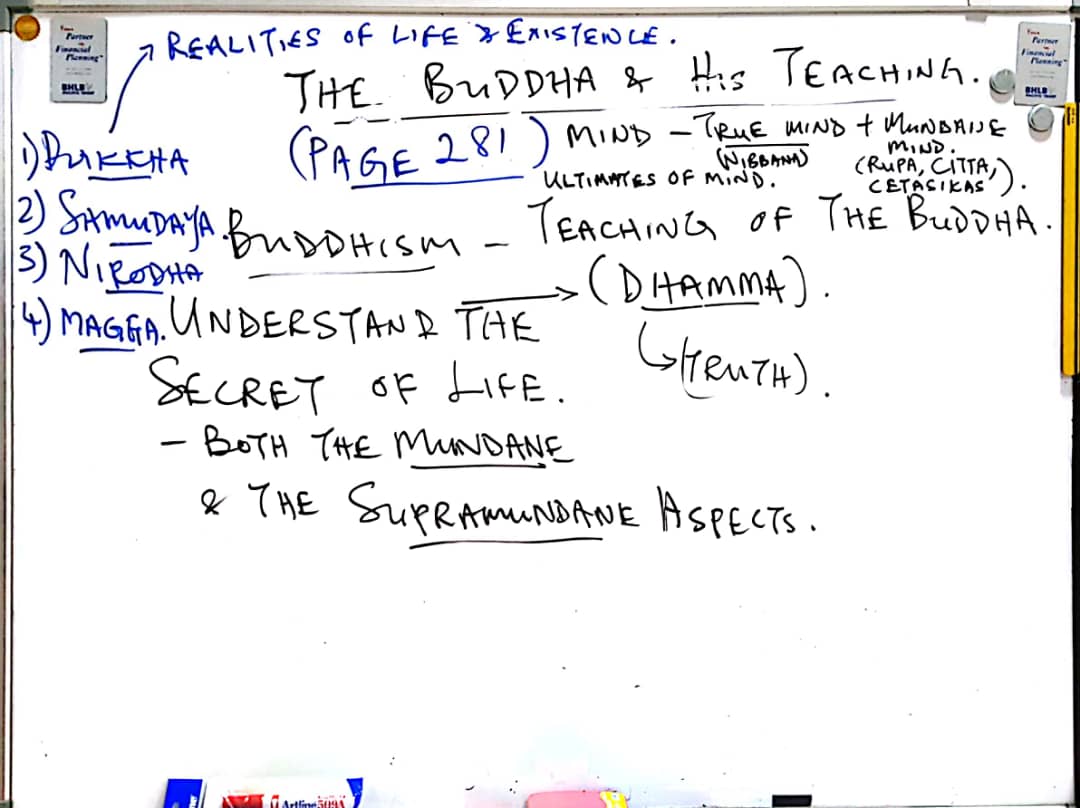 REALITIES OF LIFE & EXISTENCE.
THE BUDDHA & HIS TEACHING.
(PAGE 281)
MIND - TRUE MIND + MUNDANE MIND.
(NIBBANA)
(RUPA, CITTA, CETASIKAS).
ULTIMATES OF MIND.
1) DUKKHA
2) SAMUDAYA.
3) NIRODHA
4) MAGGA.
BUDDHISM - TEACHING OF THE BUDDHA.
(DHAMMA).
(TRUTH).
UNDERSTAND THE
SECRET OF LIFE.
- BOTH THE MUNDANE
& THE SUPRAMUNDANE ASPECTS.
Partner
Financial
Planning
BHLB
Partner
Financial
Planning
BHLB
Artline 509A